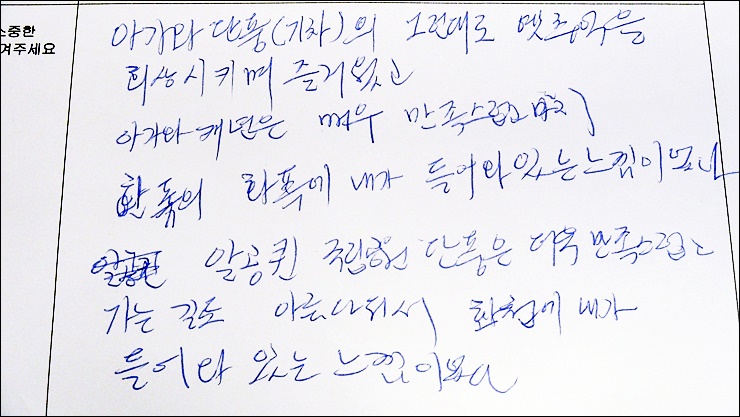 소중한
겨주세요
아가와 단풍(기차)의 그런대로 옛추억을
회상시키며 즐거웠고
아가와 캐년은 매우 만족스럽고
한 폭의 화폭에 내가 들어와 있는 느낌이었다
알공퀸 국립공원 단풍은 더욱 만족스럽고
가는 길도 아름다워서 내가
들어와 있는 느낌이었다